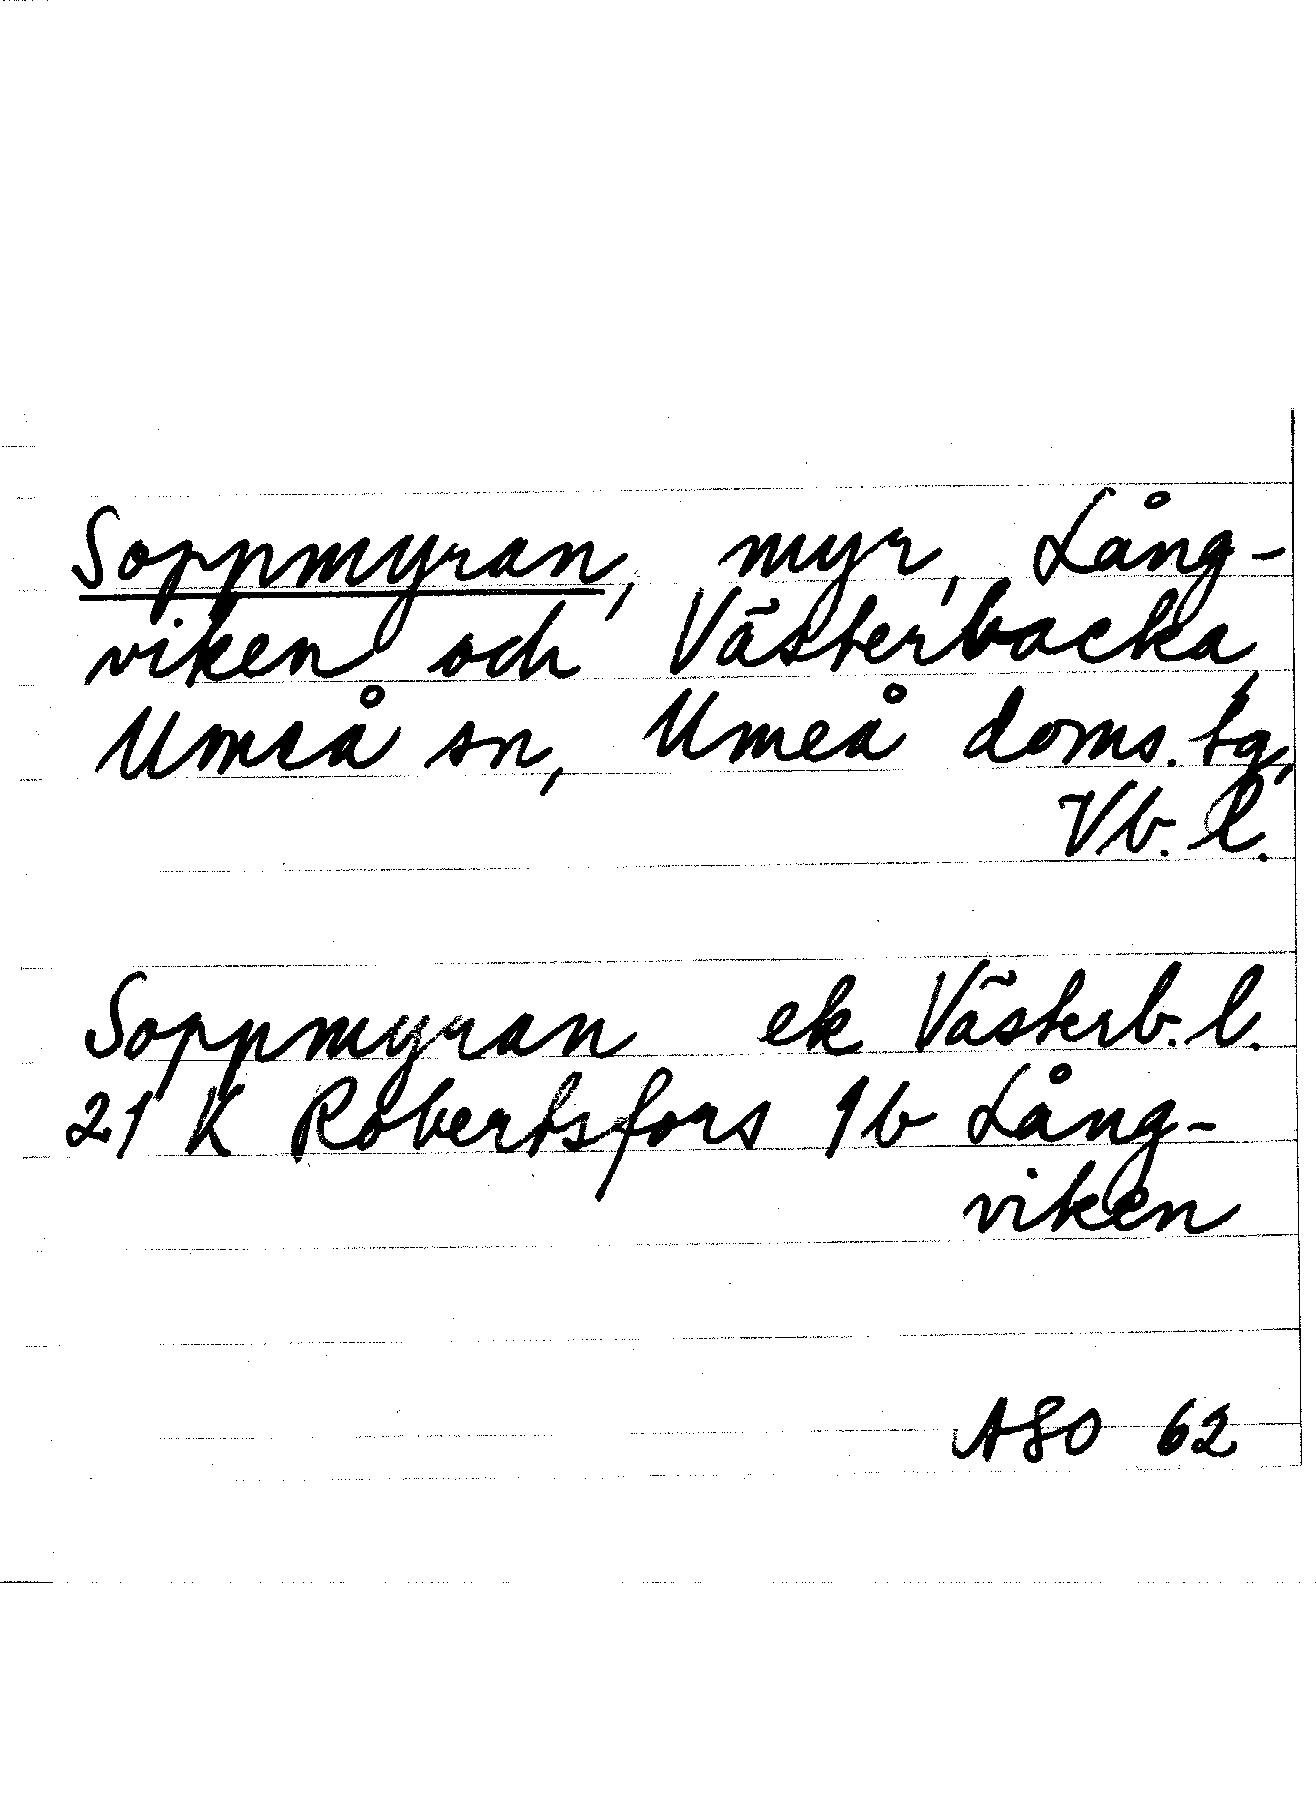 Soppmyran, myr, Lång-
viken och Västerbacka,
Umeå sn, Umeå doms. tg,
Vb. l.
Soppmyran ek Västerb. l.
21 K Robertsfors 1b Lång-
viken
ASO 62